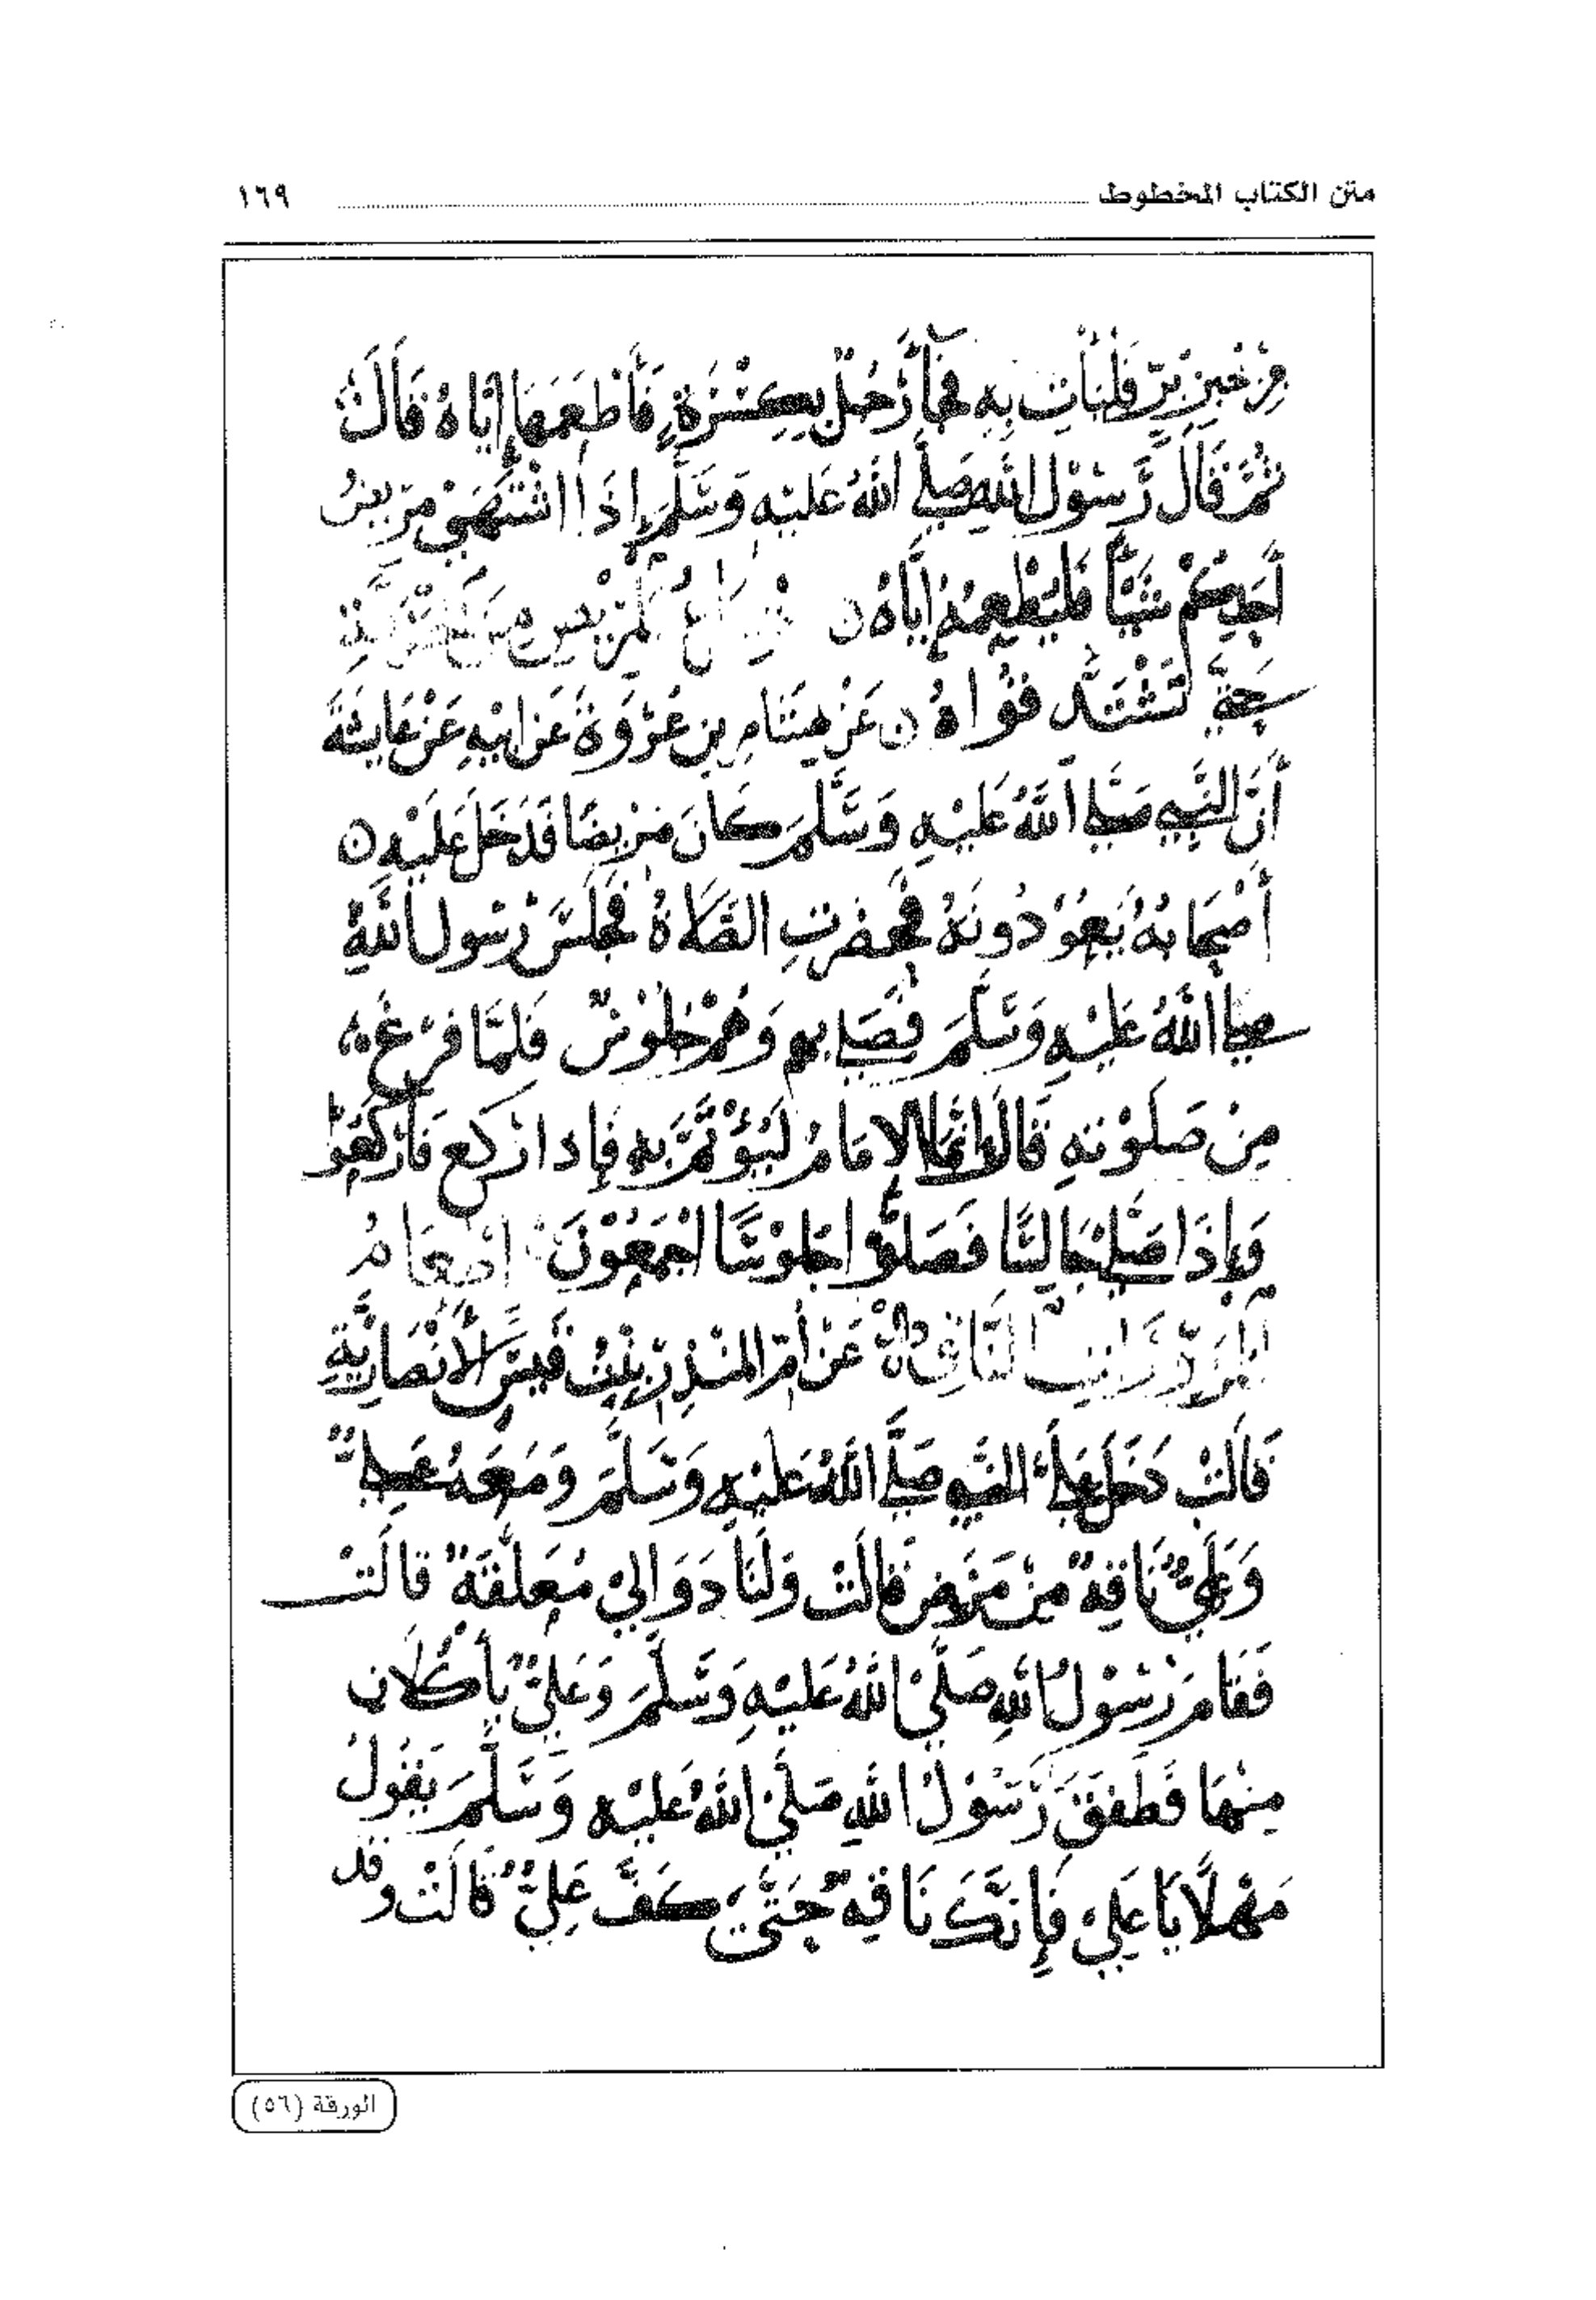 متن الكتاب المخطوط ١٦٩
مِنْ خُبزِ بُرٍّ فَلْيَاتِ بِهِ فجَآءَ رَجُلٌ بِكِسْرَةٍ فَأَطْعَمَهَا إِيَّاهُ قَالَتْ
ثُمَّ قَالَ رَسُوْلُ اللهِ صَلَّى اللهُ عَلَيْهِ وَسَلَّمَ إِذَا اشْتَهَىْ مَرِيضُ
أَحَدِكُمْ شَيْئًا فَلْيُطْعِمْهُ إِيَّاهُ ن
تَشْتَدَّ قُوَاهُ ن عَنْ هِشَامِ بنِ عُرْوَةَ عَنْ ابِيْهِ عَنْ عَايشَةَ
أَنَّ النَّبِيَّ صَلَّى اللهُ عَلَيْهِ وَسَلَّمَ كَانَ مَرِيضًا فَدَخَلَ عَلَيْهِ ن
أَصْحَابُهُ يَعُوْدُونَهُ فَحَضَرَتِ الصَّلَاةُ فَجَلَسَ رَسُولُ اللهِ
صلى اللهُ عَلَيْهِ وَسَلَّمَ فَصَلَى بهم وَهُمْ جُلُوْسٌ فَلَمَّا فَرَغَ
مِنْ صَلَوْتِهِ قَالَ إِنَّمَا الإِمَامُ لِيُؤْتَمَّ بِهِ فَإِذا رَكَعَ فَارْكَعُوْا
وَإِذَا صَلَّى جَالِسًا فَصَلُّوْا جُلُوْسًا اجْمَعُوْنَ إِطْعَامُ
النَّاقِهَ عَنْ أُمِّ المُنْذِرِ بِنْتِ قَيْسٍ الأَنْصَارِيَّةِ
قَالَتْ دَخَلَ عَلَيَّ النَّبِيُّ صَلَّى اللهُ عَلَيْهِ وَسَلَّمَ وَمَعَهُ عَلِيٌّ
وَعَلِيٌّ نَاقِهٌ مِنْ مَرَضٍ قَالَتْ وَلَنَا دَوَالِيْ مُعَلَّقَةٌ قَالَتْ
فَقَامَ رَسُوْلُ اللهِ صَلَّىْ اللهُ عَلَيْهِ وَسَلَّمَ وَعَلِيٌّ يَأْكُلَانِ
مِنْهَا فَطَفِقَ رَسُوْلُ اللهِ صَلَّىْ اللهُ عَلَيْهِ وَسَلَّمَ يَقُولُ
مَهْلًا يَا عَلِيْ فَإِنَّكَ نَاقِهٌ حَتَّىْ كَفَّ عَلِيٌّ قَالَتْ وقد
الورقة (٥٦)